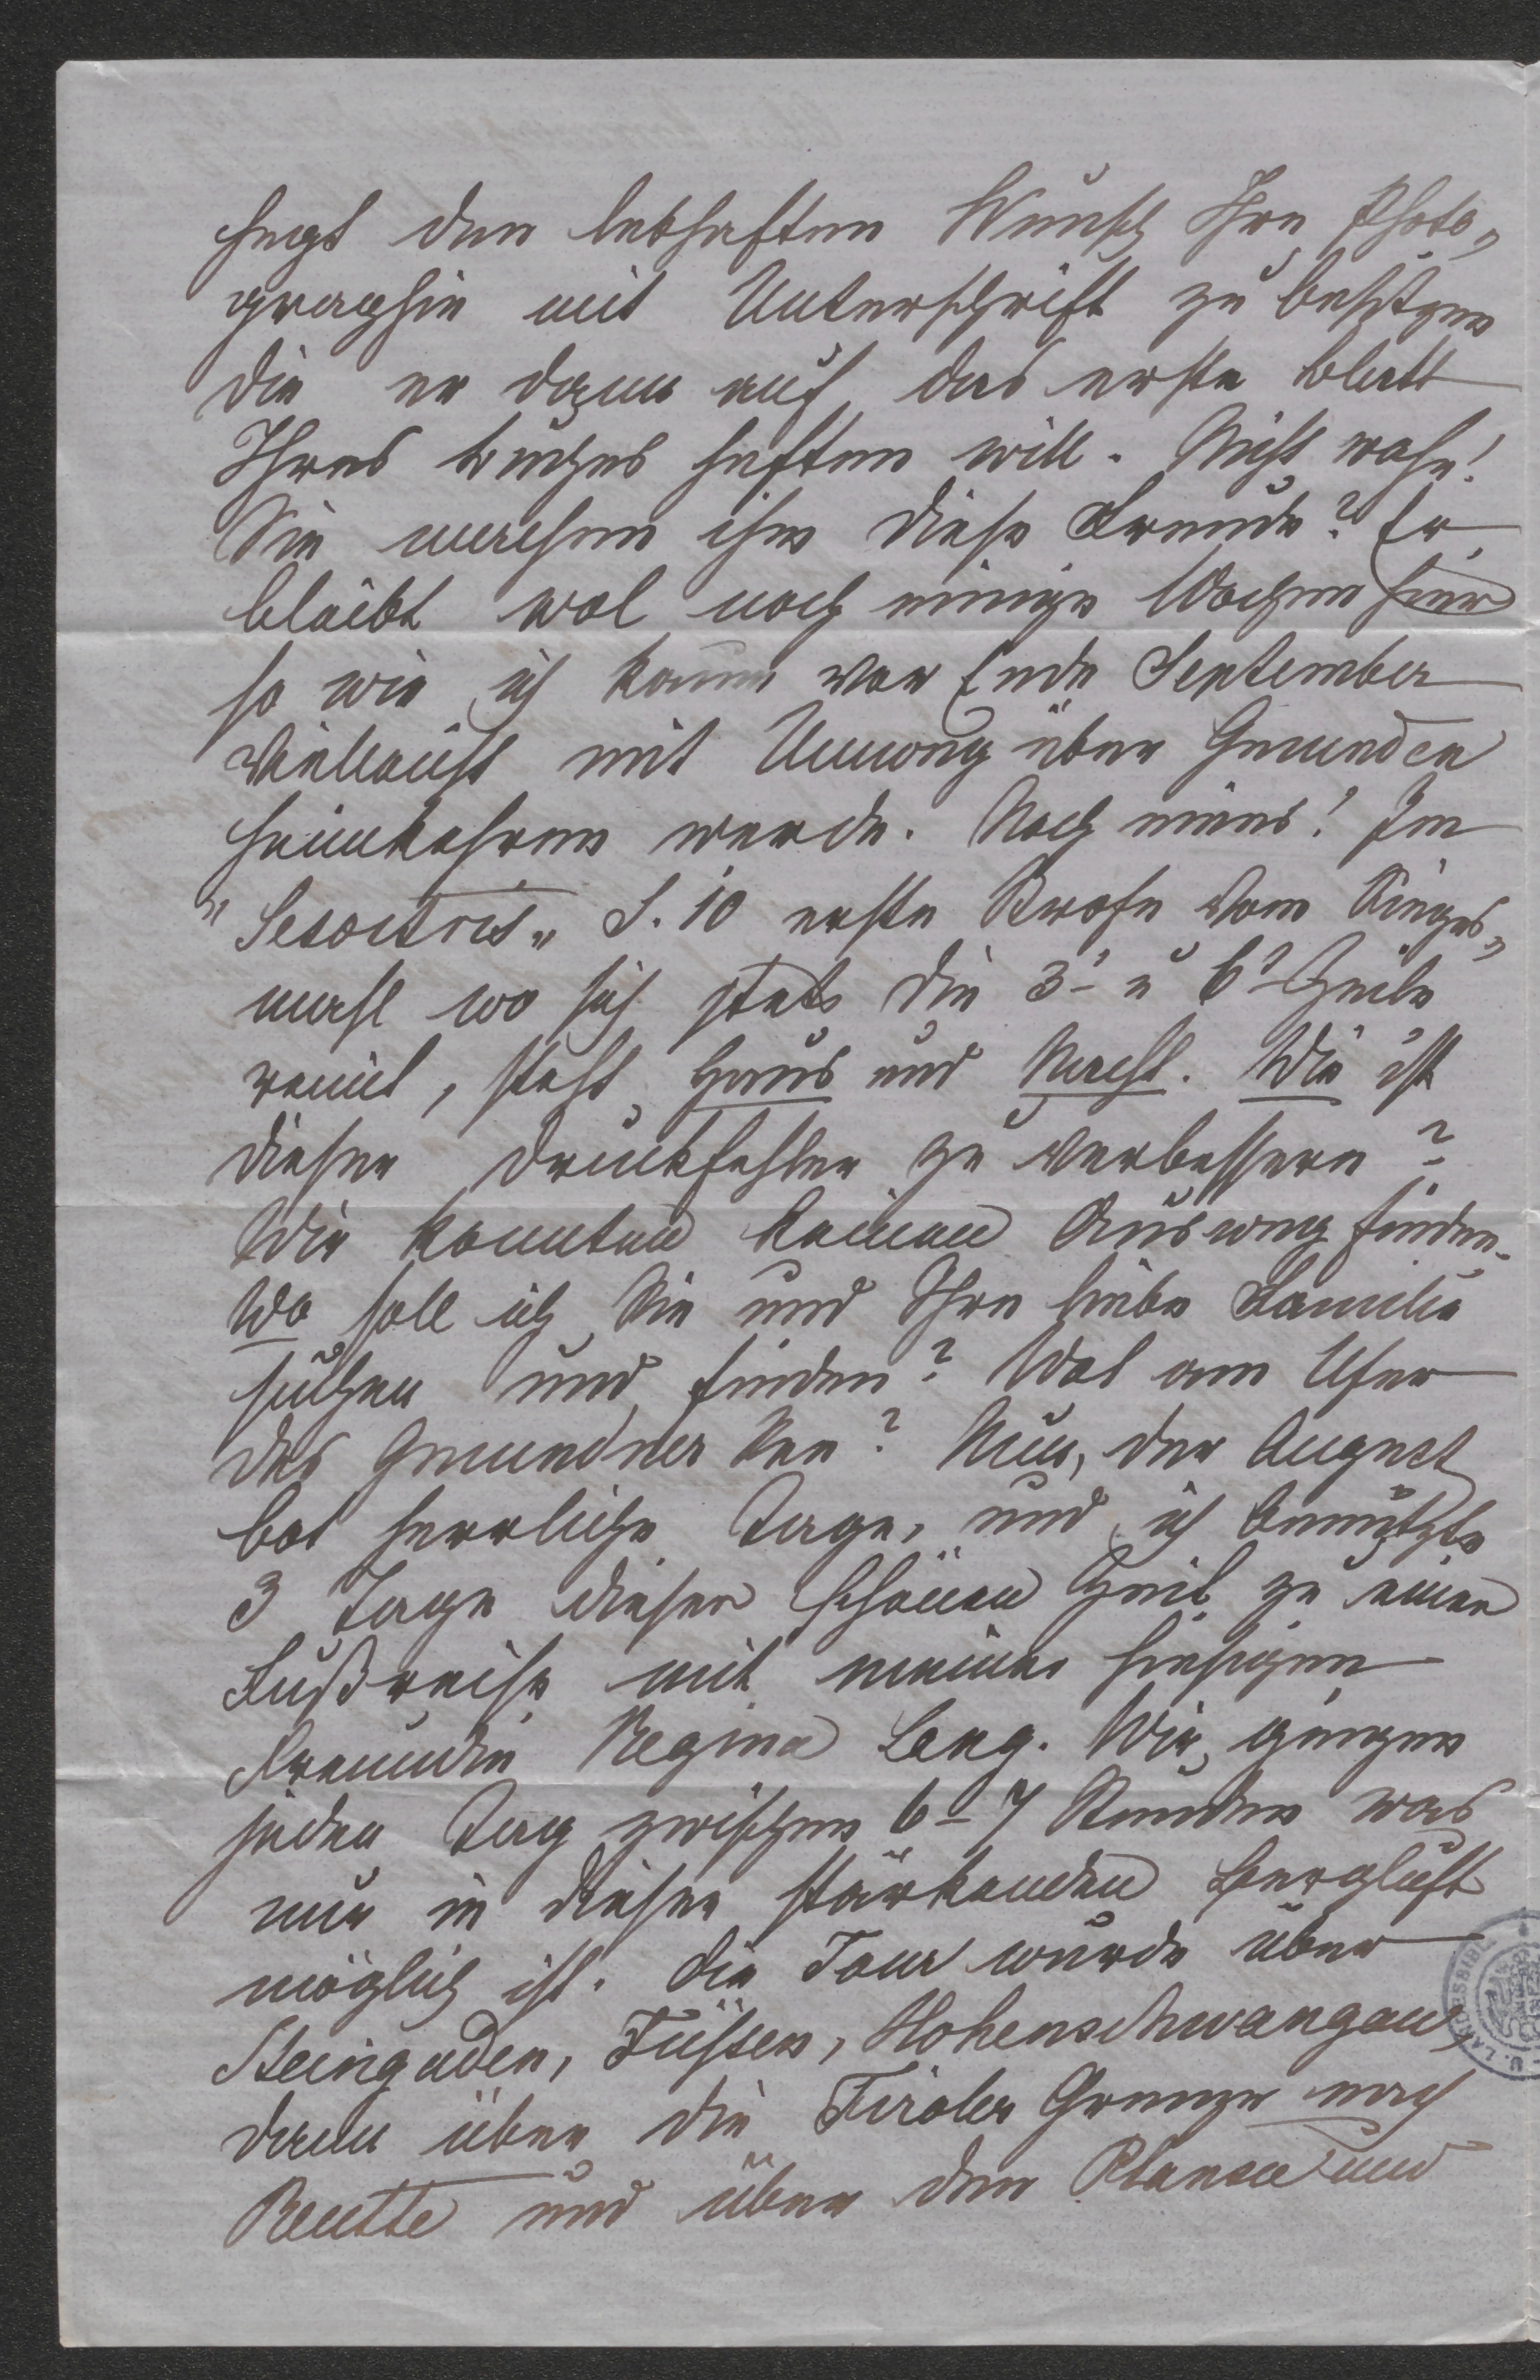 hegt den lebhaften Wunsch Ihre Photo„
graphie mit Unterschrift zu besitzen
die er dann auf das erste Blatt
Ihres Buches heften will. Nicht wahr!
Sie machen ihm diese Freude? Er
bleibt wol noch einige Wochen hier
so wie ich kaum vor Ende September
vielleicht mit Umweg über Gmunden
heimkehren werde. Noch eines! Im
"Sesostris„ S. 10 erste Strofe vom Sieges„
mahl wo sich stets die 3t u 6t Zeile
reimt, steht Haus und Nacht. Wie ist
dieser Druckfehler zu verbessern?
Wir konnten keinen Ausweg finden.
Wo soll ich Sie und Ihre liebe Familie
suchen und finden? Wol am Ufer
des Gmundner See? Nun, der August
bot herrliche Tage, und ich benützte
3 Tage dieser schönen Zeit zu einer
Fußreise mit meiner hiesigen
Freundin Regina Lang. Wir gingen
jeden Tag zwischen 6-7 Stunden was
nur in dieser stärkenden Bergluft
möglich ist. Die Tour wurde über
Steingaden, Füssen, Hohenschwangau,
dann über die Tiroler Grenze nach
Reutte und über den Plansee und